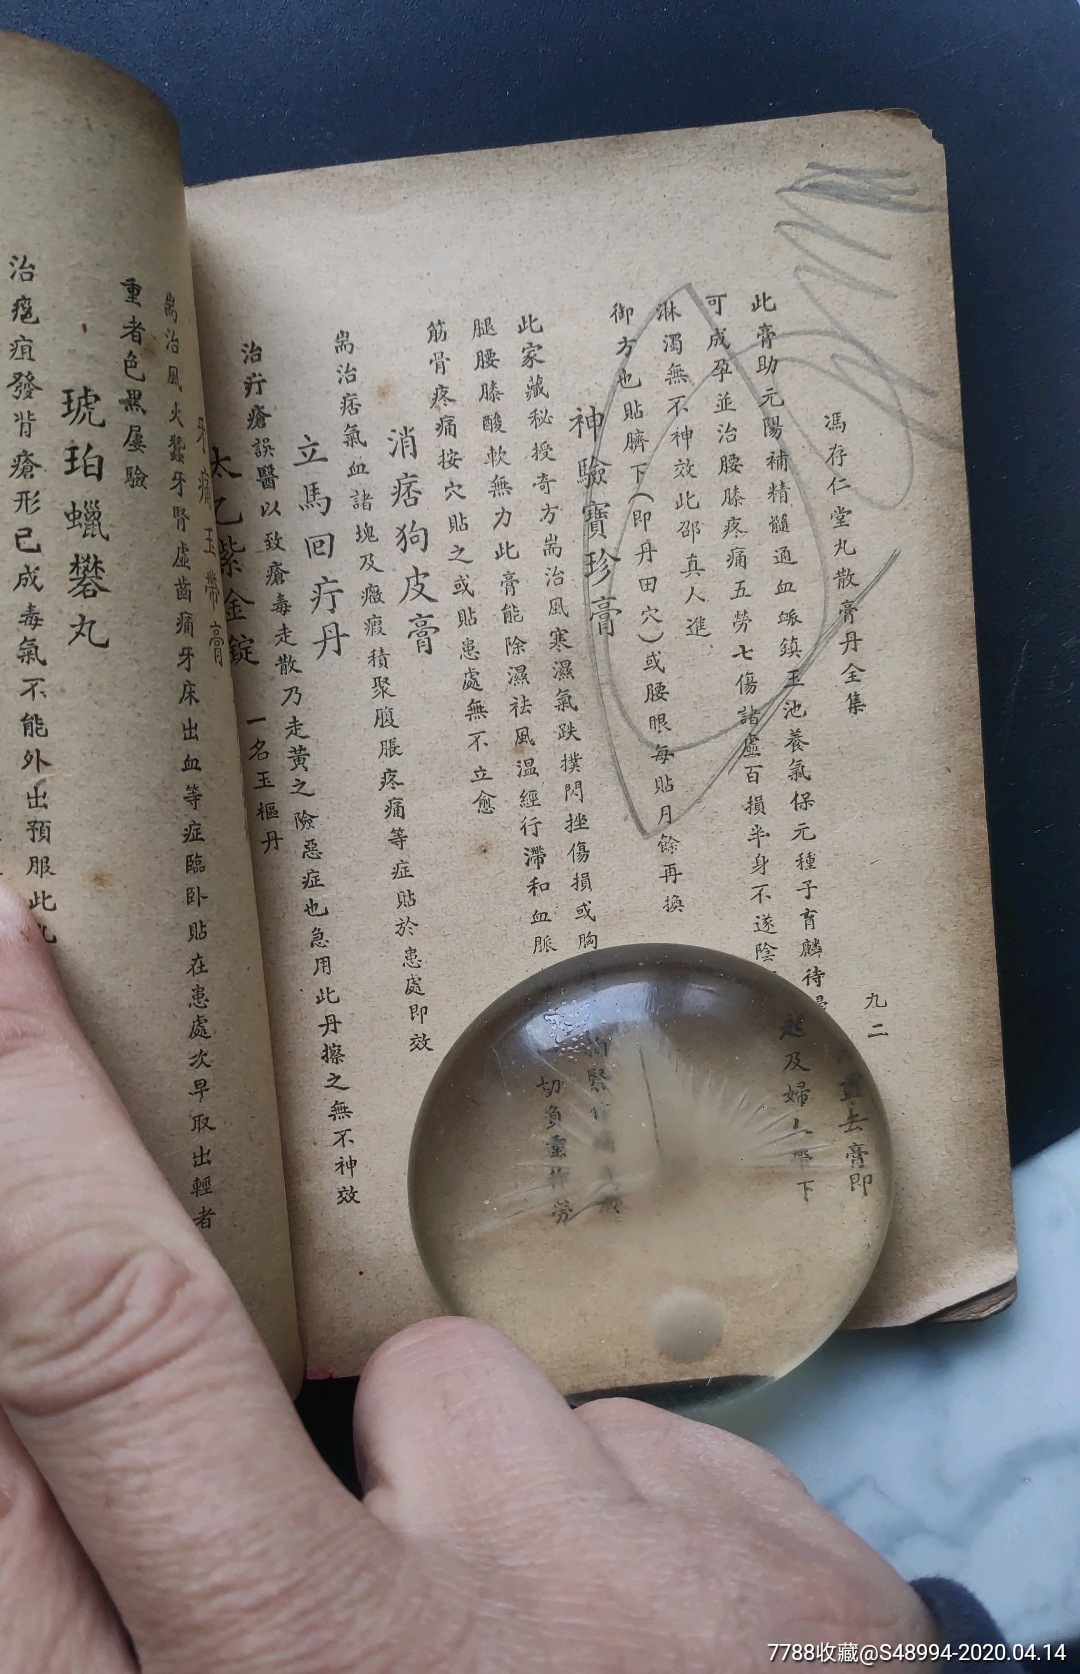 馮存仁堂丸散膏丹全集
九二
此膏助元陽補精髓通血脈鎮玉池養氣保元種子育麟待婦
重去膏即
可成孕並治腰膝疼痛五勞七傷諸虛百損半身不遂陰
及婦人帶下
淋濁無不神效此邵真人進
御方也貼臍下(即丹田穴)或腰眼每貼月餘再換
神驗寶珍膏
此家藏秘授奇方耑治風寒濕氣跌撲閃挫傷損或胸
腿腰膝酸軟無力此膏能除濕祛風温經行滯和血脈
切負重
勞
筋骨疼痛按穴貼之或貼患處無不立愈
消痞狗皮膏
耑治痞氣血諸塊及癥瘕積聚腹脹疼痛等症貼於患處即效
立馬回疔丹
治疔瘡誤醫以致瘡毒走散乃走黃之險惡症也急用此丹擦之無不神效
太乙紫金錠
一名玉樞丹
牙痛玉帶膏
耑治風火蟲牙腎虛齒痛牙床出血等症臨卧貼在患處次早取出輕者
重者色黑屢驗
琥珀蠟礬丸
治癰疽發背瘡形已成毒氣不能外出預服此丸
7788收藏@S48994-2020.04.14